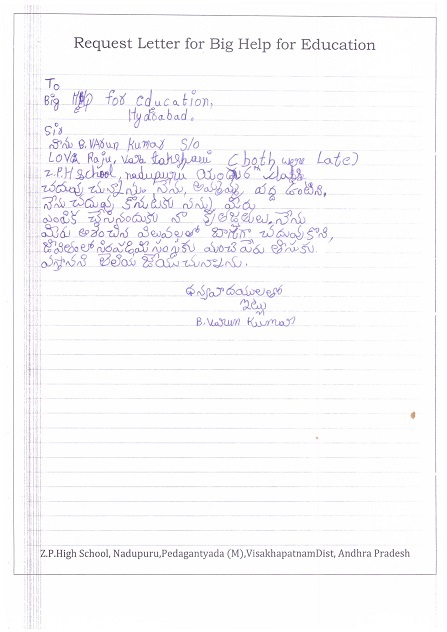 Request Letter for Big Help for Education
To
Big Help for Education,
Hydbabad.
Sir
నాను B. Varun Kumar S/o
LOVA Raju, Vara Lakshmi (both were Late)
Z.P.H School, nadupuru యందు class
చదువు చున్నాను. నేను, అమ్మమ్మ వద్ద ఉంటిని,
నేను చదువు కొనుటకు నన్ను మీరు
ఎంపిక చేసినందుకు నా కృతజ్ఞతలు. నేను
మీరు అందించిన విలువలతో బాగా చదువుకొని,
జీవితంలో స్థిరపడి మీ సంస్థకు మంచి పేరు తీసుకు
వస్తానని తెలియ జేయుచున్నాను.
ధన్యవాదములతో
ఇట్లు
B. Varun Kumar
Z.P.High School, Nadupuru,Pedagantyada (M),VisakhapatnamDist, Andhra Pradesh